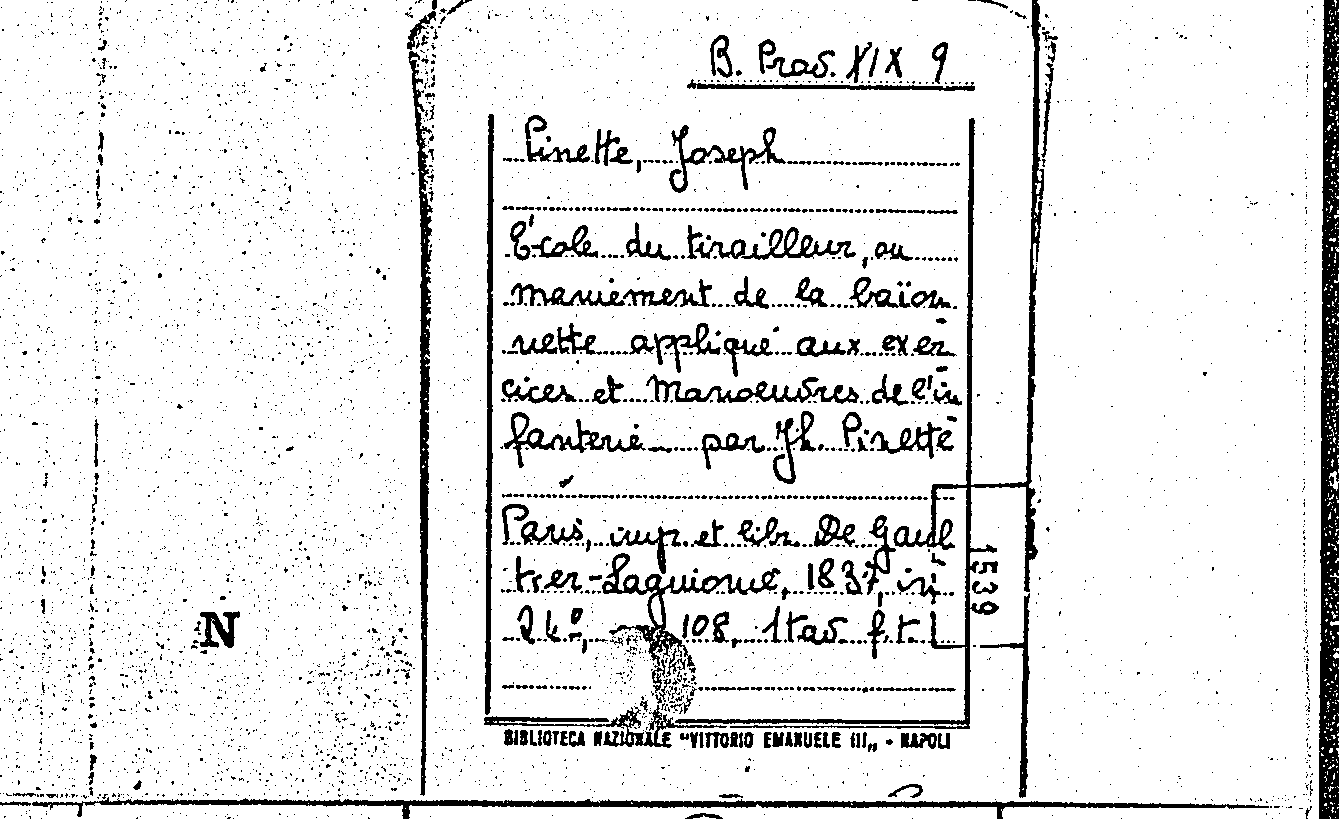 B. Prov. XIX 9
Pinette, Joseph
École du tirailleur, ou
maniement de la baïon
nette appliqué aux exer
cices et Manoeuvres de l'in
fanterie par Jh. Pinette
Paris, imp. et libr. De Gaul
tier-Laguionie, 1837, in
24º, 108, 1 tav. f.t.
1539
N
BIBLIOTECA NAZIONALE "VITTORIO EMANUELE III„ - NAPOLI